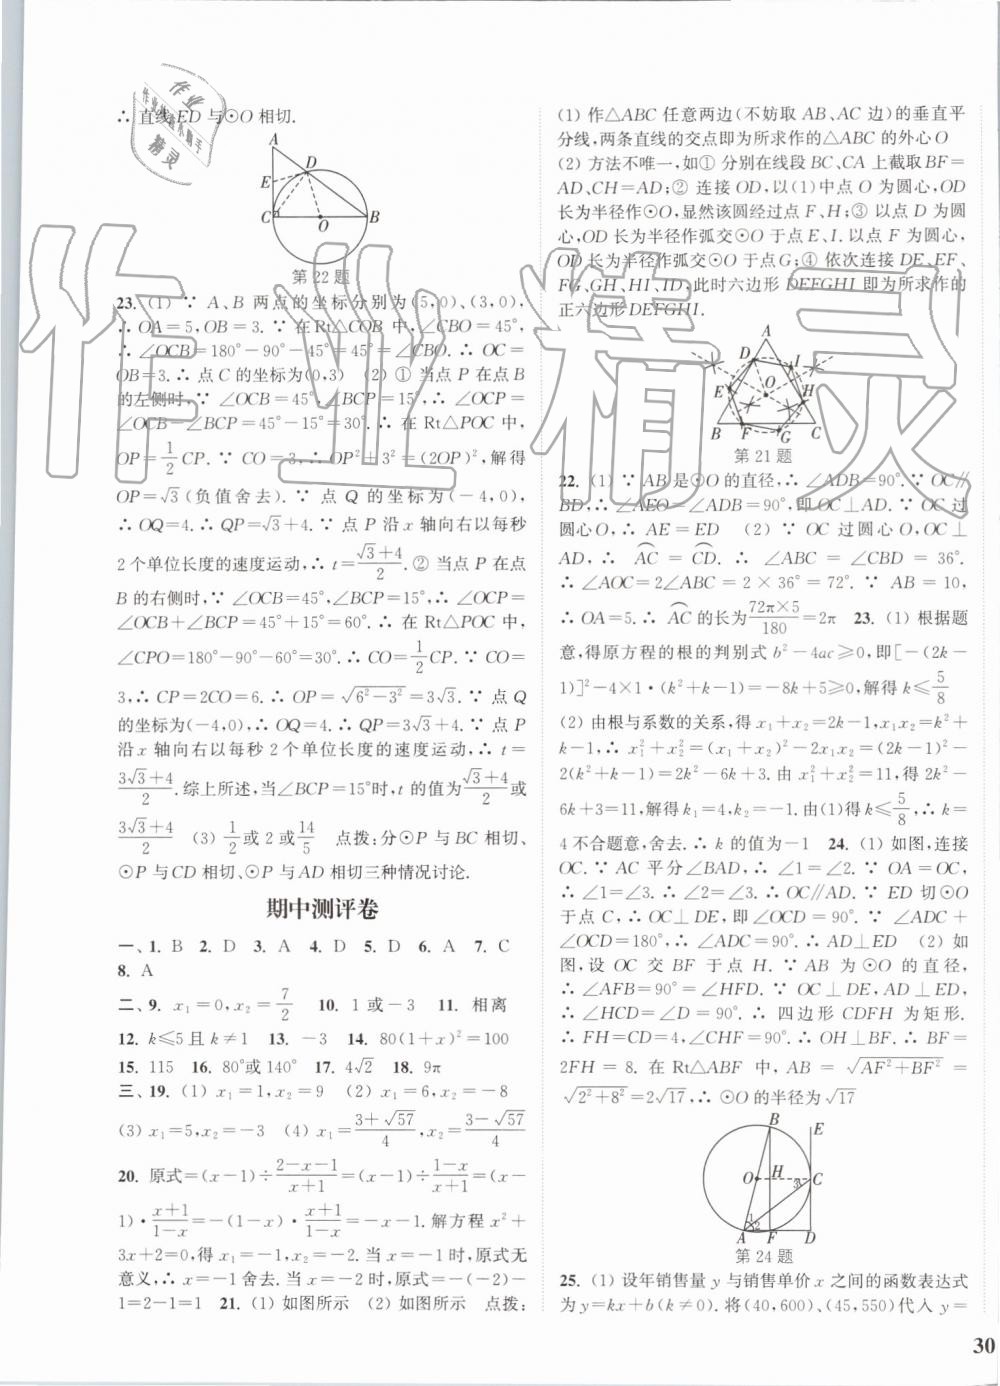 ∴ 直线 ED 与⊙O 相切.
A
D
E
C
O
B
第 22 题
23. (1) ∵ A、B 两点的坐标分别为(5,0)、(3,0),
∴ OA=5,OB=3. ∵ 在Rt△COB 中,∠CBO=45°,
∴ ∠OCB=180°-90°-45°=45°=∠CBO. ∴ OC=
OB=3. ∴ 点 C 的坐标为(0,3) (2) ① 当点 P 在点 B
的左侧时,∵ ∠OCB=45°,∠BCP=15°,∴ ∠OCP=
∠OCB-∠BCP=45°-15°=30°. ∴ 在 Rt△POC 中,
OP=1/2 CP. ∵ CO=3,∴ OP²+3²=(2OP)²,解得
OP=√3 (负值舍去). ∵ 点 Q 的坐标为(-4,0),
∴ OQ=4. ∴ QP=√3+4. ∵ 点 P 沿 x 轴向右以每秒
2 个单位长度的速度运动,∴ t=(√3+4)/2. ② 当点 P 在点
B 的右侧时,∵ ∠OCB=45°,∠BCP=15°,∴ ∠OCP=
∠OCB+∠BCP=45°+15°=60°. ∴ 在 Rt△POC 中,
∠CPO=180°-90°-60°=30°. ∴ CO=1/2 CP. ∵ CO=
3,∴ CP=2CO=6. ∴ OP=√(6²-3²)=3√3. ∵ 点 Q
的坐标为(-4,0),∴ OQ=4. ∴ QP=3√3+4. ∵ 点 P
沿 x 轴向右以每秒 2 个单位长度的速度运动,∴ t=
(3√3+4)/2. 综上所述,当∠BCP=15°时,t 的值为(√3+4)/2 或
(3√3+4)/2 (3) 1/2 或 2 或 14/5 点拨:分⊙P 与 BC 相切、
⊙P 与 CD 相切、⊙P 与 AD 相切三种情况讨论.
期中测评卷
一、1. B 2. D 3. A 4. D 5. D 6. A 7. C
8. A
二、9. x₁=0,x₂=7/2 10. 1 或-3 11. 相离
12. k≤5 且 k≠1 13. -3 14. 80(1+x)²=100
15. 115 16. 80°或 140° 17. 4√2 18. 9π
三、19. (1) x₁=1,x₂=9 (2) x₁=6,x₂=-8
(3) x₁=5,x₂=-3 (4) x₁=(3+√57)/4,x₂=(3-√57)/4
20. 原式=(x-1)÷(2-x-1)/(x+1)=(x-1)÷(1-x)/(x+1)=(x-
1)·(x+1)/(1-x)=-(1-x)·(x+1)/(1-x)=-x-1. 解方程 x²+
3x+2=0,得 x₁=-1,x₂=-2. 当 x=-1 时,原式无
意义,∴ x=-1 舍去. 当 x=-2 时,原式=-(-2)-
1=2-1=1 21. (1) 如图所示 (2) 如图所示 点拨:
(1) 作△ABC 任意两边(不妨取 AB、AC 边)的垂直平
分线,两条直线的交点即为所求作的△ABC 的外心 O
(2) 方法不唯一,如① 分别在线段 BC、CA 上截取 BF=
AD、CH=AD;② 连接 OD,以(1)中点 O 为圆心,OD
长为半径作⊙O,显然该圆经过点 F、H;③ 以点 D 为圆
心,OD 长为半径作弧交⊙O 于点 E、I. 以点 F 为圆心,
OD 长为半径作弧交⊙O 于点 G;④ 依次连接 DE、EF、
FG、GH、HI、ID,此时六边形 DEFGHI 即为所求作的
正六边形 DEFGHI.
A
D
I
O
E
H
B
F
G
C
第 21 题
22. (1) ∵ AB 是⊙O 的直径,∴ ∠ADB=90°. ∵ OC∥
BD,∴ ∠AEO=∠ADB=90°,即 OC⊥AD. ∵ OC 过
圆心 O,∴ AE=ED (2) ∵ OC 过圆心 O,OC⊥
AD,∴ AC⌒ = CD⌒. ∴ ∠ABC = ∠CBD = 36°.
∴ ∠AOC=2∠ABC = 2 × 36° = 72°. ∵ AB = 10,
∴ OA=5. ∴ AC⌒的长为(72π×5)/180=2π 23. (1) 根据题
意,得原方程的根的判别式 b²-4ac≥0,即[-(2k-
1)]²-4×1·(k²+k-1)=-8k+5≥0,解得 k≤5/8
(2) 由根与系数的关系,得 x₁+x₂=2k-1,x₁x₂=k²+
k-1,∴ x₁²+x₂²=(x₁+x₂)²-2x₁x₂=(2k-1)²-
2(k²+k-1)=2k²-6k+3. 由 x₁²+x₂²=11,得 2k²-
6k+3=11,解得 k₁=4,k₂=-1. 由(1)得 k≤5/8,∴ k=
4 不合题意,舍去. ∴ k 的值为-1 24. (1) 如图,连接
OC. ∵ AC 平分∠BAD,∴ ∠1=∠2. ∵ OA=OC,
∴ ∠1=∠3. ∴ ∠2=∠3. ∴ OC∥AD. ∵ ED 切⊙O
于点 C,∴ OC⊥DE,即∠OCD=90°. ∵ ∠ADC+
∠OCD=180°,∴ ∠ADC=90°. ∴ AD⊥ED (2) 如
图,设 OC 交 BF 于点 H. ∵ AB 为 ⊙O 的直径,
∴ ∠AFB=90°=∠HFD. ∵ OC⊥DE,AD⊥DE,
∴ ∠HCD=∠D = 90°. ∴ 四边形 CDFH 为矩形.
∴ FH=CD=4,∠CHF=90°. ∴ OH⊥BF. ∴ BF=
2FH = 8. 在 Rt△ABF 中,AB = √(AF²+BF²) =
√(2²+8²)=2√17,∴ ⊙O 的半径为√17
B
E
O
H
3
C
1
2
A
F
D
第 24 题
25. (1) 设年销售量 y 与销售单价 x 之间的函数表达式
为 y=kx+b(k≠0). 将(40,600)、(45,550)代入 y=
30
作业精灵
作业
精灵